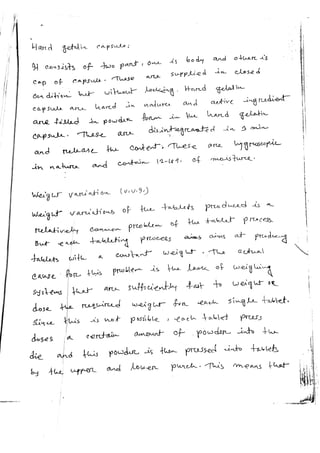 Hard gelatin capsule:
It consists of two part, one is body and other is
cap of capsule. These are supplied in closed
condition but without locking. Hard gelatin
capsule are hard in nature and active ingredient
are filled in powder form in the hard gelatin
capsule. These are disintegreated in 5 min
and release the content. These are hygroscopic
in nature and contain 12-16% of moisture.
Weight variation (V.V.I.)
Weight variations of the tablets produced is a
relatively common problem of the tablet process
But each tableting process aims at producing
tablets with a constant weight. The actual
cause for this problem is the lack of weighing
systems that are sufficiently fast to weight or
dose the required weight for each single tablet.
Since this is not possible, each tablet press
doses a certain amount of powder into the
die and this powder is then pressed into tablets
by the upper and lower punch. This means that